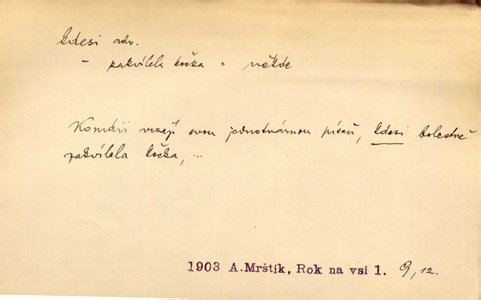 kdesi adv.
- zakvílela kočka = někde
Komáři vrzají svou jednotvárnou píseň, kdesi bolestně
zakvílela kočka, ...
1903 A.Mrštík, Rok na vsi 1. 9, 12.